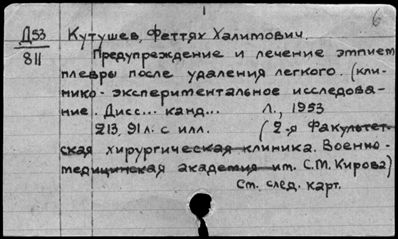 6
Д53 Кутушев, Феттях Халимович.
811 Предупреждение и лечение эмпием
плевры после удаления легкого. (кли-
нико-экспериментальное исследова-
ние. Дисс... канд... Л., 1953
213, 91 л. с илл. (2-я Факультет-
ская хирургическая клиника. Военно-
медицинская академия им. С.М. Кирова)
См. след. карт.